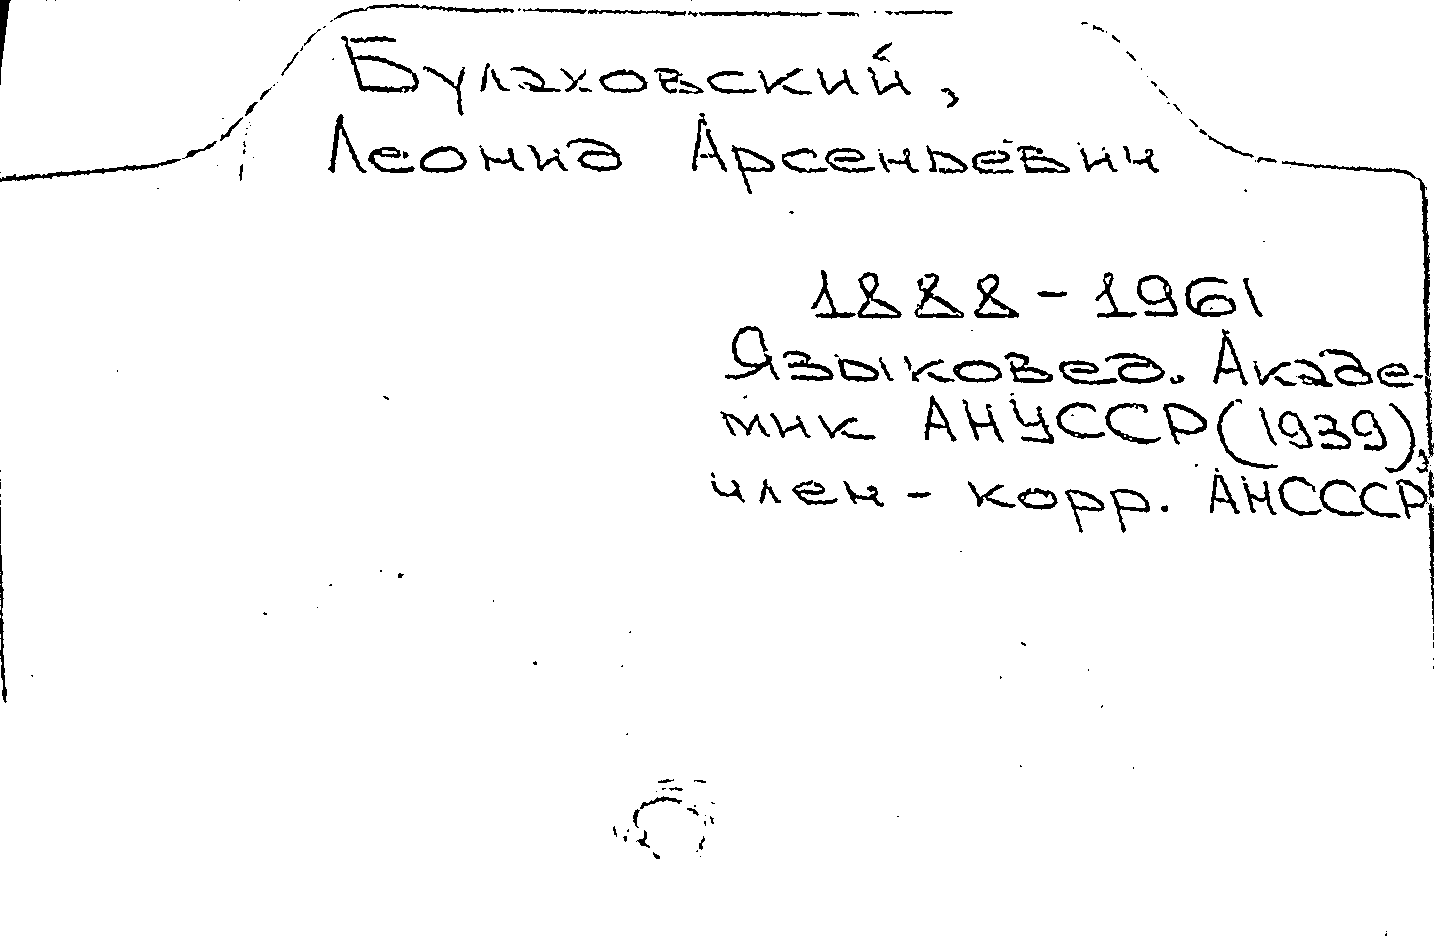 Булаховский,
Леонид Арсеньевич
1888-1961
Языковед. Акаде-
мик АНУССР(1939),
член-корр. АНСССР